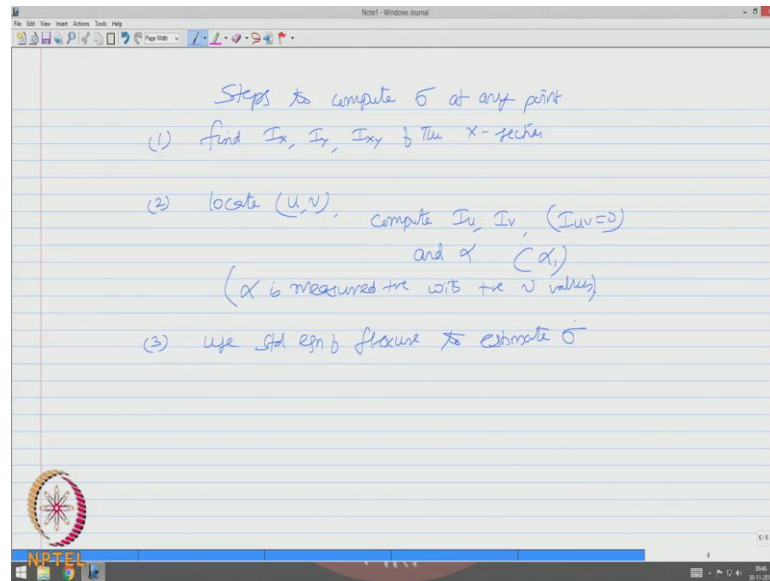 Note1 - Windows Journal
File Edit View Insert Actions Tools Help
Page Width
Steps to compute σ at any point
(1) find Ix, Iy, Ixy of the x-section
(2) locate (u,v),
compute Iu, Iv, (Iuv=0)
and α (α1)
(α is measured +ve with +ve v values)
(3) use std eqn of flexure to estimate σ
6/6
6
NPTEL
09:46